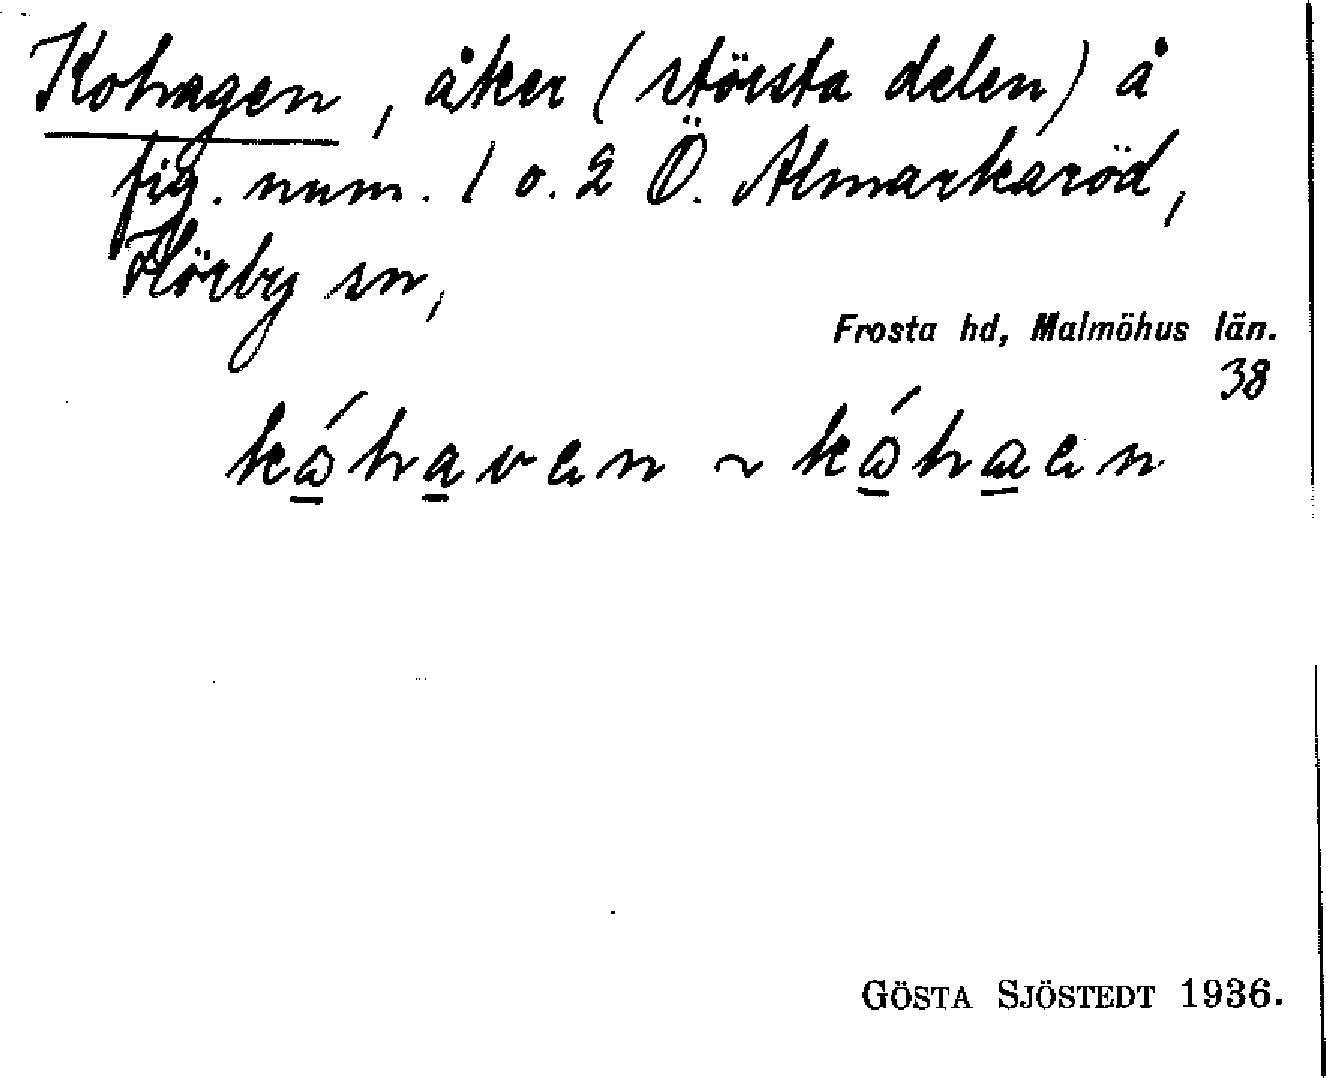 Kohagen, åker (största delen) å
fig. num. 1 o. 2 Ö. Almarkaröd,
Hörby sn,
Frosta hd, Malmöhus län.
38
kǻhaven ~ kǻhaen
GÖSTA SJÖSTEDT 1936.